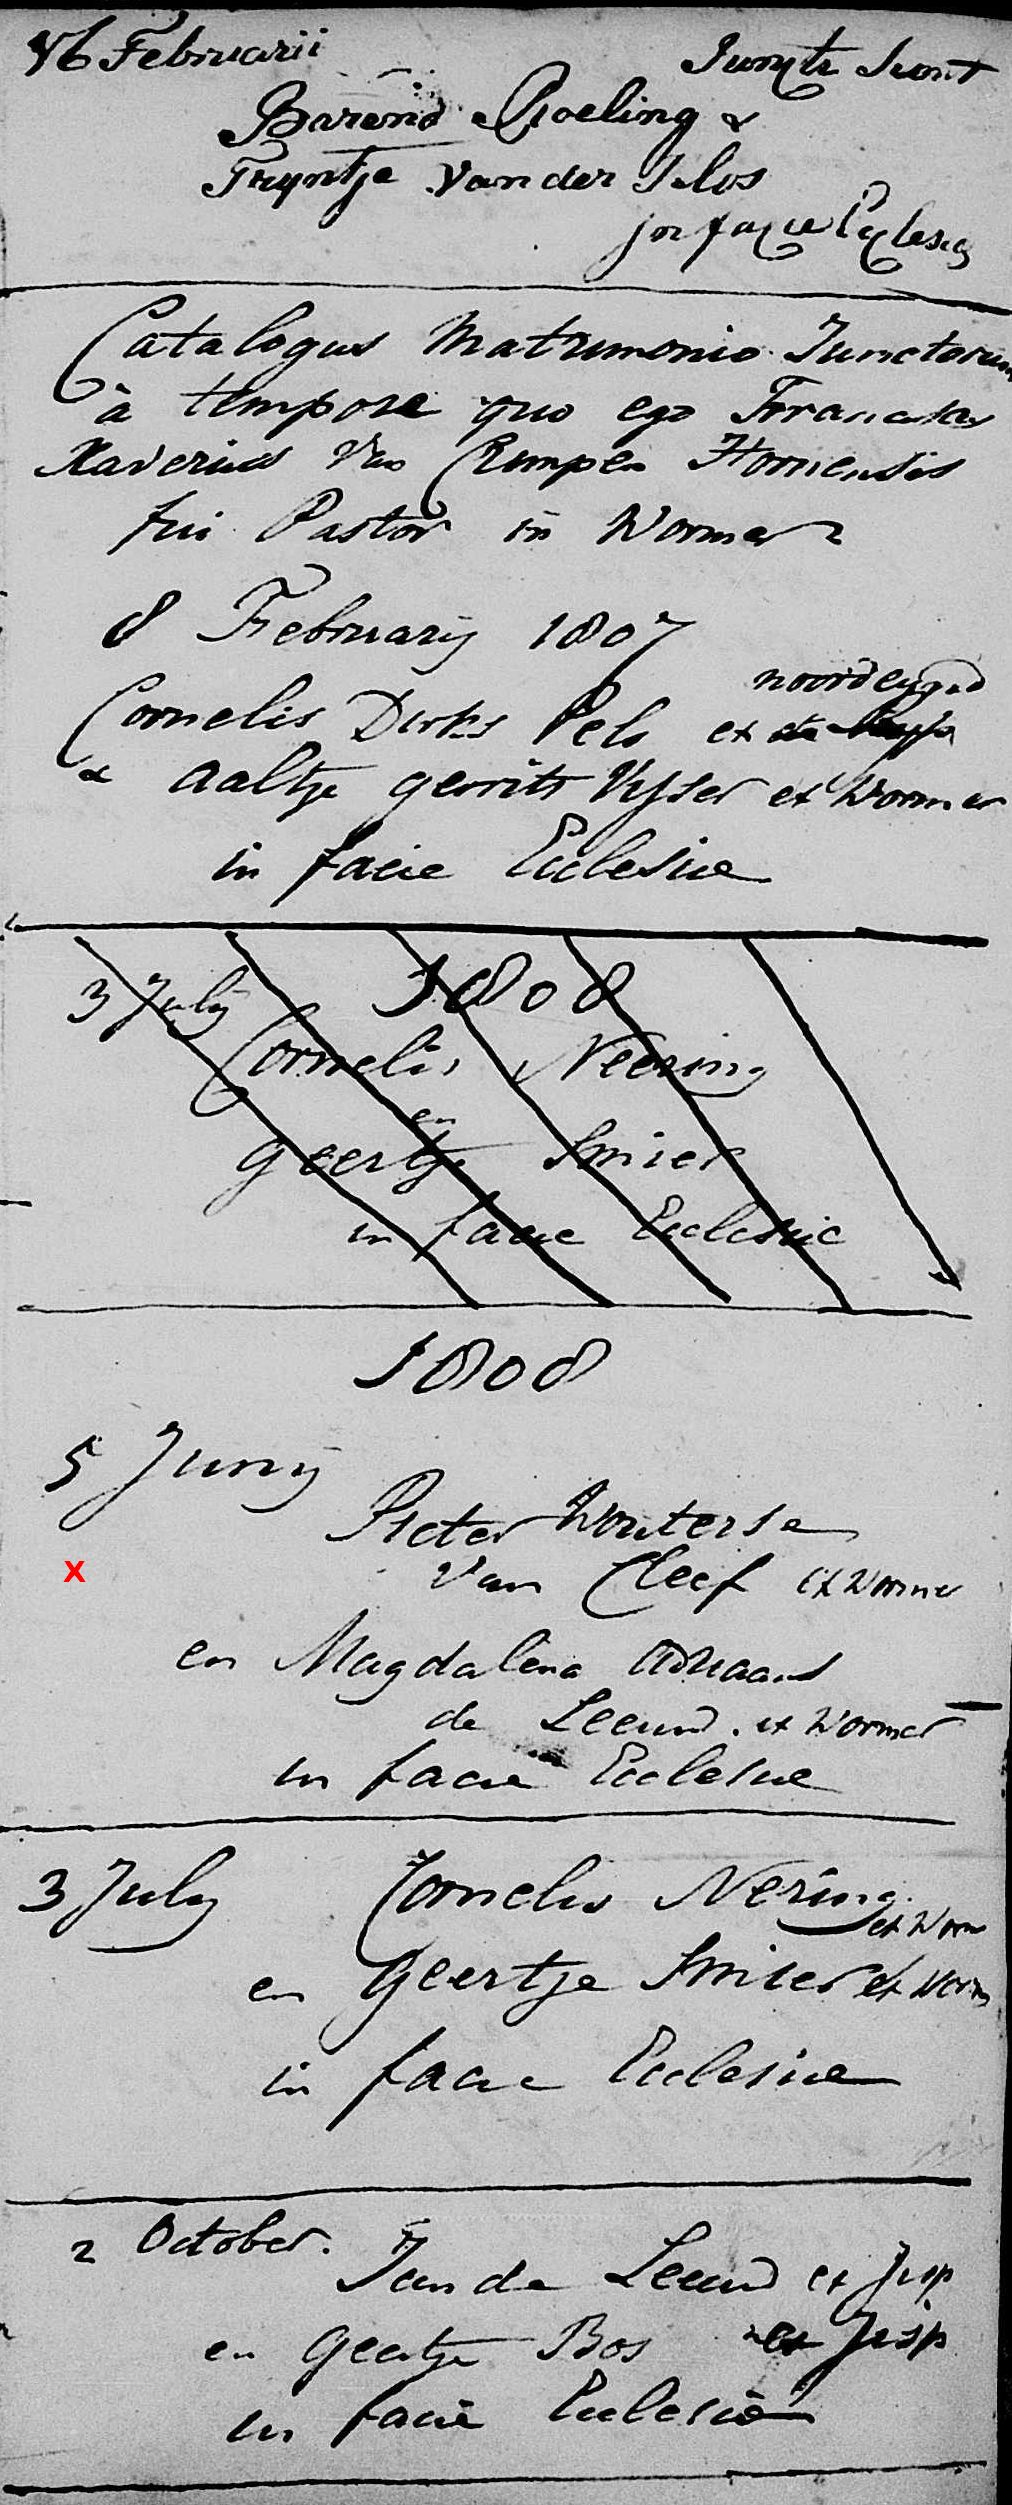 16 Februarii Juncti sunt
Barend Roeling &
Tryntje van der Slos
in facie Ecclesia
Catalogus Matrimonio Junctorum
à tempore quo ego Franciskus
Xaverius Van Rumpen Hornensis
fui Pastor in Wormer
8 February 1807
noordeynd
Cornelis Dirks Pels ex de
& aaltje gerrits Vysser ex Wormer
in facie Ecclesiae
3 July 1808
Cornelis Neering
en
geertje Smier
in facie Ecclesiae
1808
5 Juny
Pieter Wouterse
x van Cleef ex Wormer
en Magdalena Adriaans
de Leeuw. ex Wormer
in facie Ecclesiae
3 July Cornelis Nering
ex Worm
en Geertje Smier ex Worm
in facie Ecclesiae
2 October. Jan de Leeuw ex Jisp
en Geertje Bos ex Jisp
in facie Ecclesiae